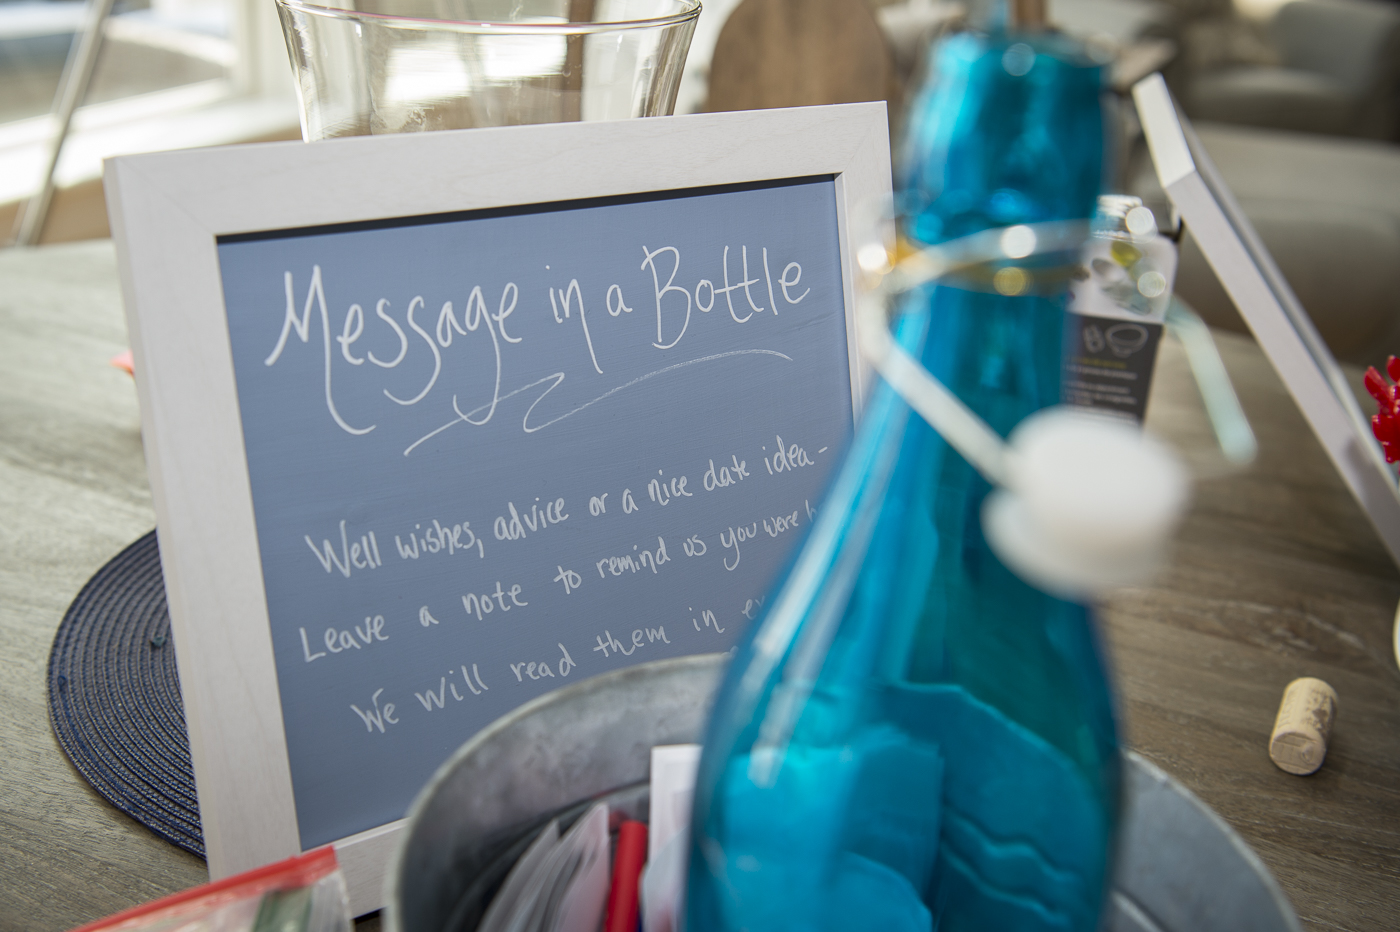 Message in a Bottle
Well wishes, advice or a nice date idea -
Leave a note to remind us you were
We will read them in